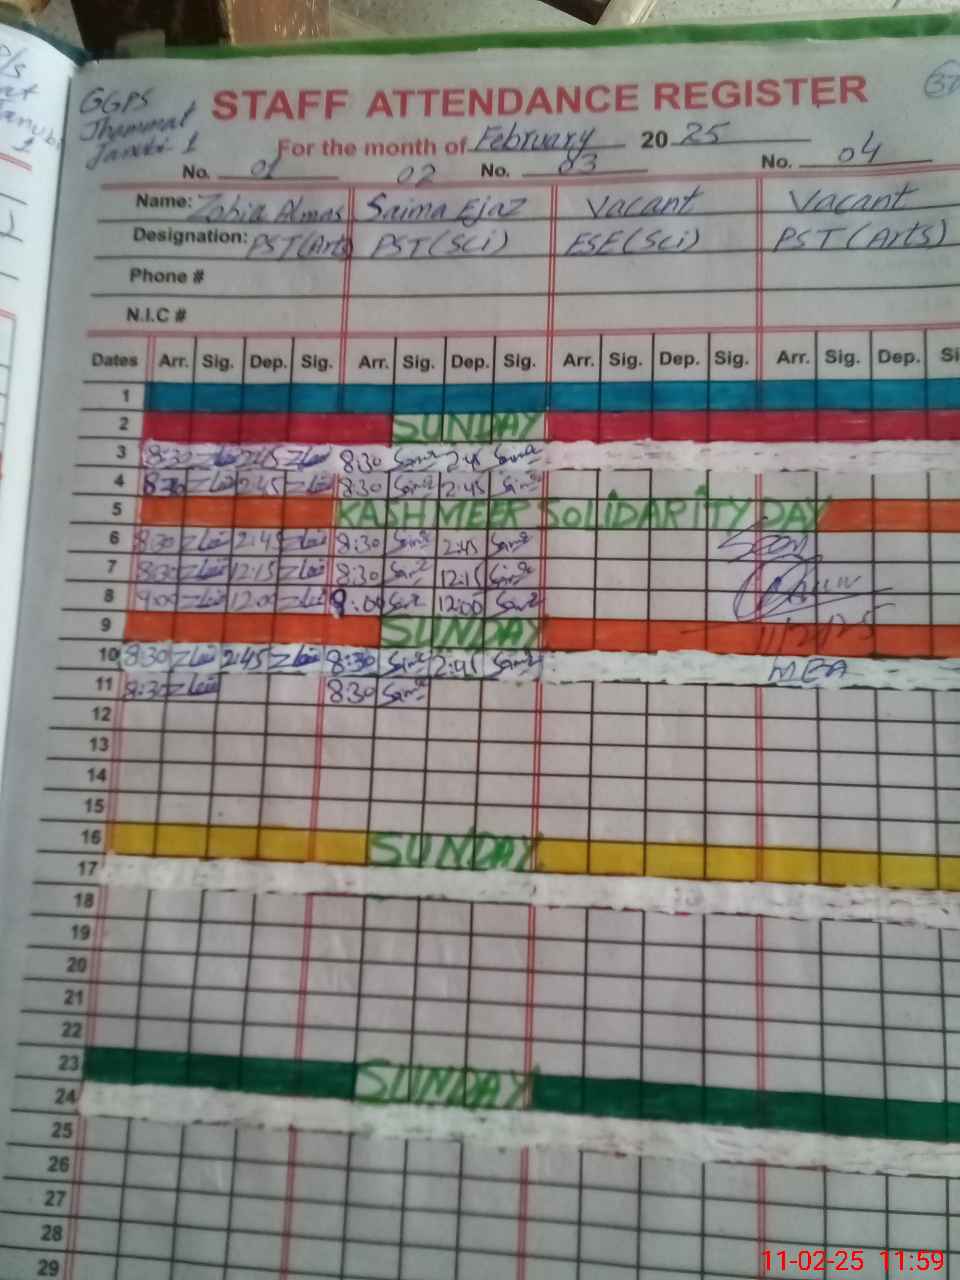 GGPS
Jhammat
Janubi 1
STAFF ATTENDANCE REGISTER
For the month of February 2025
No. 01 02 No. 03 No. 04
Name: Zobia Almas Saima Ejaz Vacant Vacant
Designation: PST(Arts) PST(Sci) ESE(Sci) PST(Arts)
Phone #
N.I.C #
Dates Arr. Sig. Dep. Sig. Arr. Sig. Dep. Sig. Arr. Sig. Dep. Sig. Arr. Sig. Dep. Si
1
2 SUNDAY
3 8:30 2:45 8:30 2:45
4 8:30 2:45 8:30 2:45
5 KASHMEER SOLIDARITY DAY
6 8:30 2:45 8:30 2:45
7 8:30 12:15 8:30 12:15
8 9:00 12:00 9:00 12:00
9 SUNDAY 11/2/25
10 8:30 2:45 8:30 2:45 MEA
11 8:30 8:30
12
13
14
15
16 SUNDAY
17
18
19
20
21
22
23 SUNDAY
24
25
26
27
28
29
11-02-25 11:59